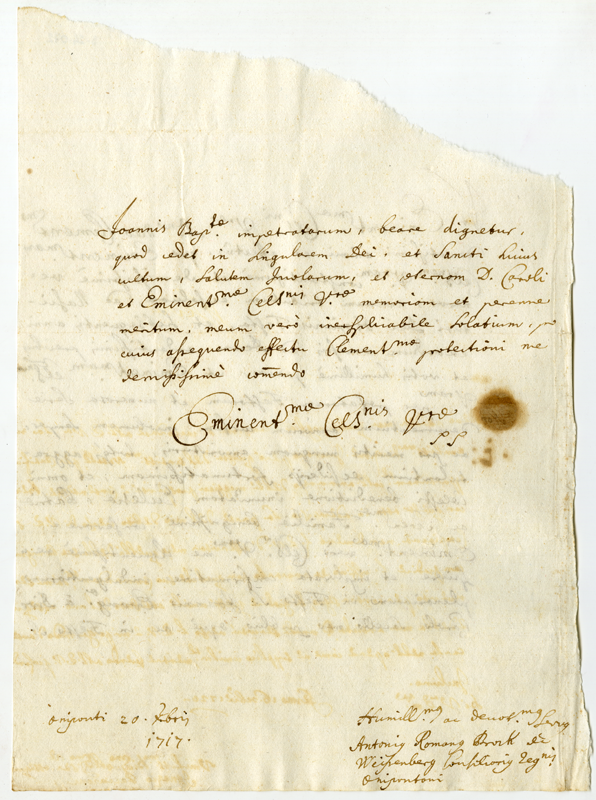 Joannis Bap.te impetratarum, beare dignetur,
quod cedet in singularem Dei, et Sancti huius
cultum, salutem Incolarum, et æternam D. Caroli
et Eminent.mæ Cels.nis Vræ memoriam et perenne
meritum, meum verò inexplicabile solatium, pro
cuius assequendo effectu Clement.mæ protectioni me
demississimè com̄endo
Eminent.mæ Cels.nis Vræ
Œniponti 20. Xbris
1717.
Humill.mg ac devot.mg
Antonig Romang Brock de
Weissenberg Consiliarig Reg.nis
Œnipontani